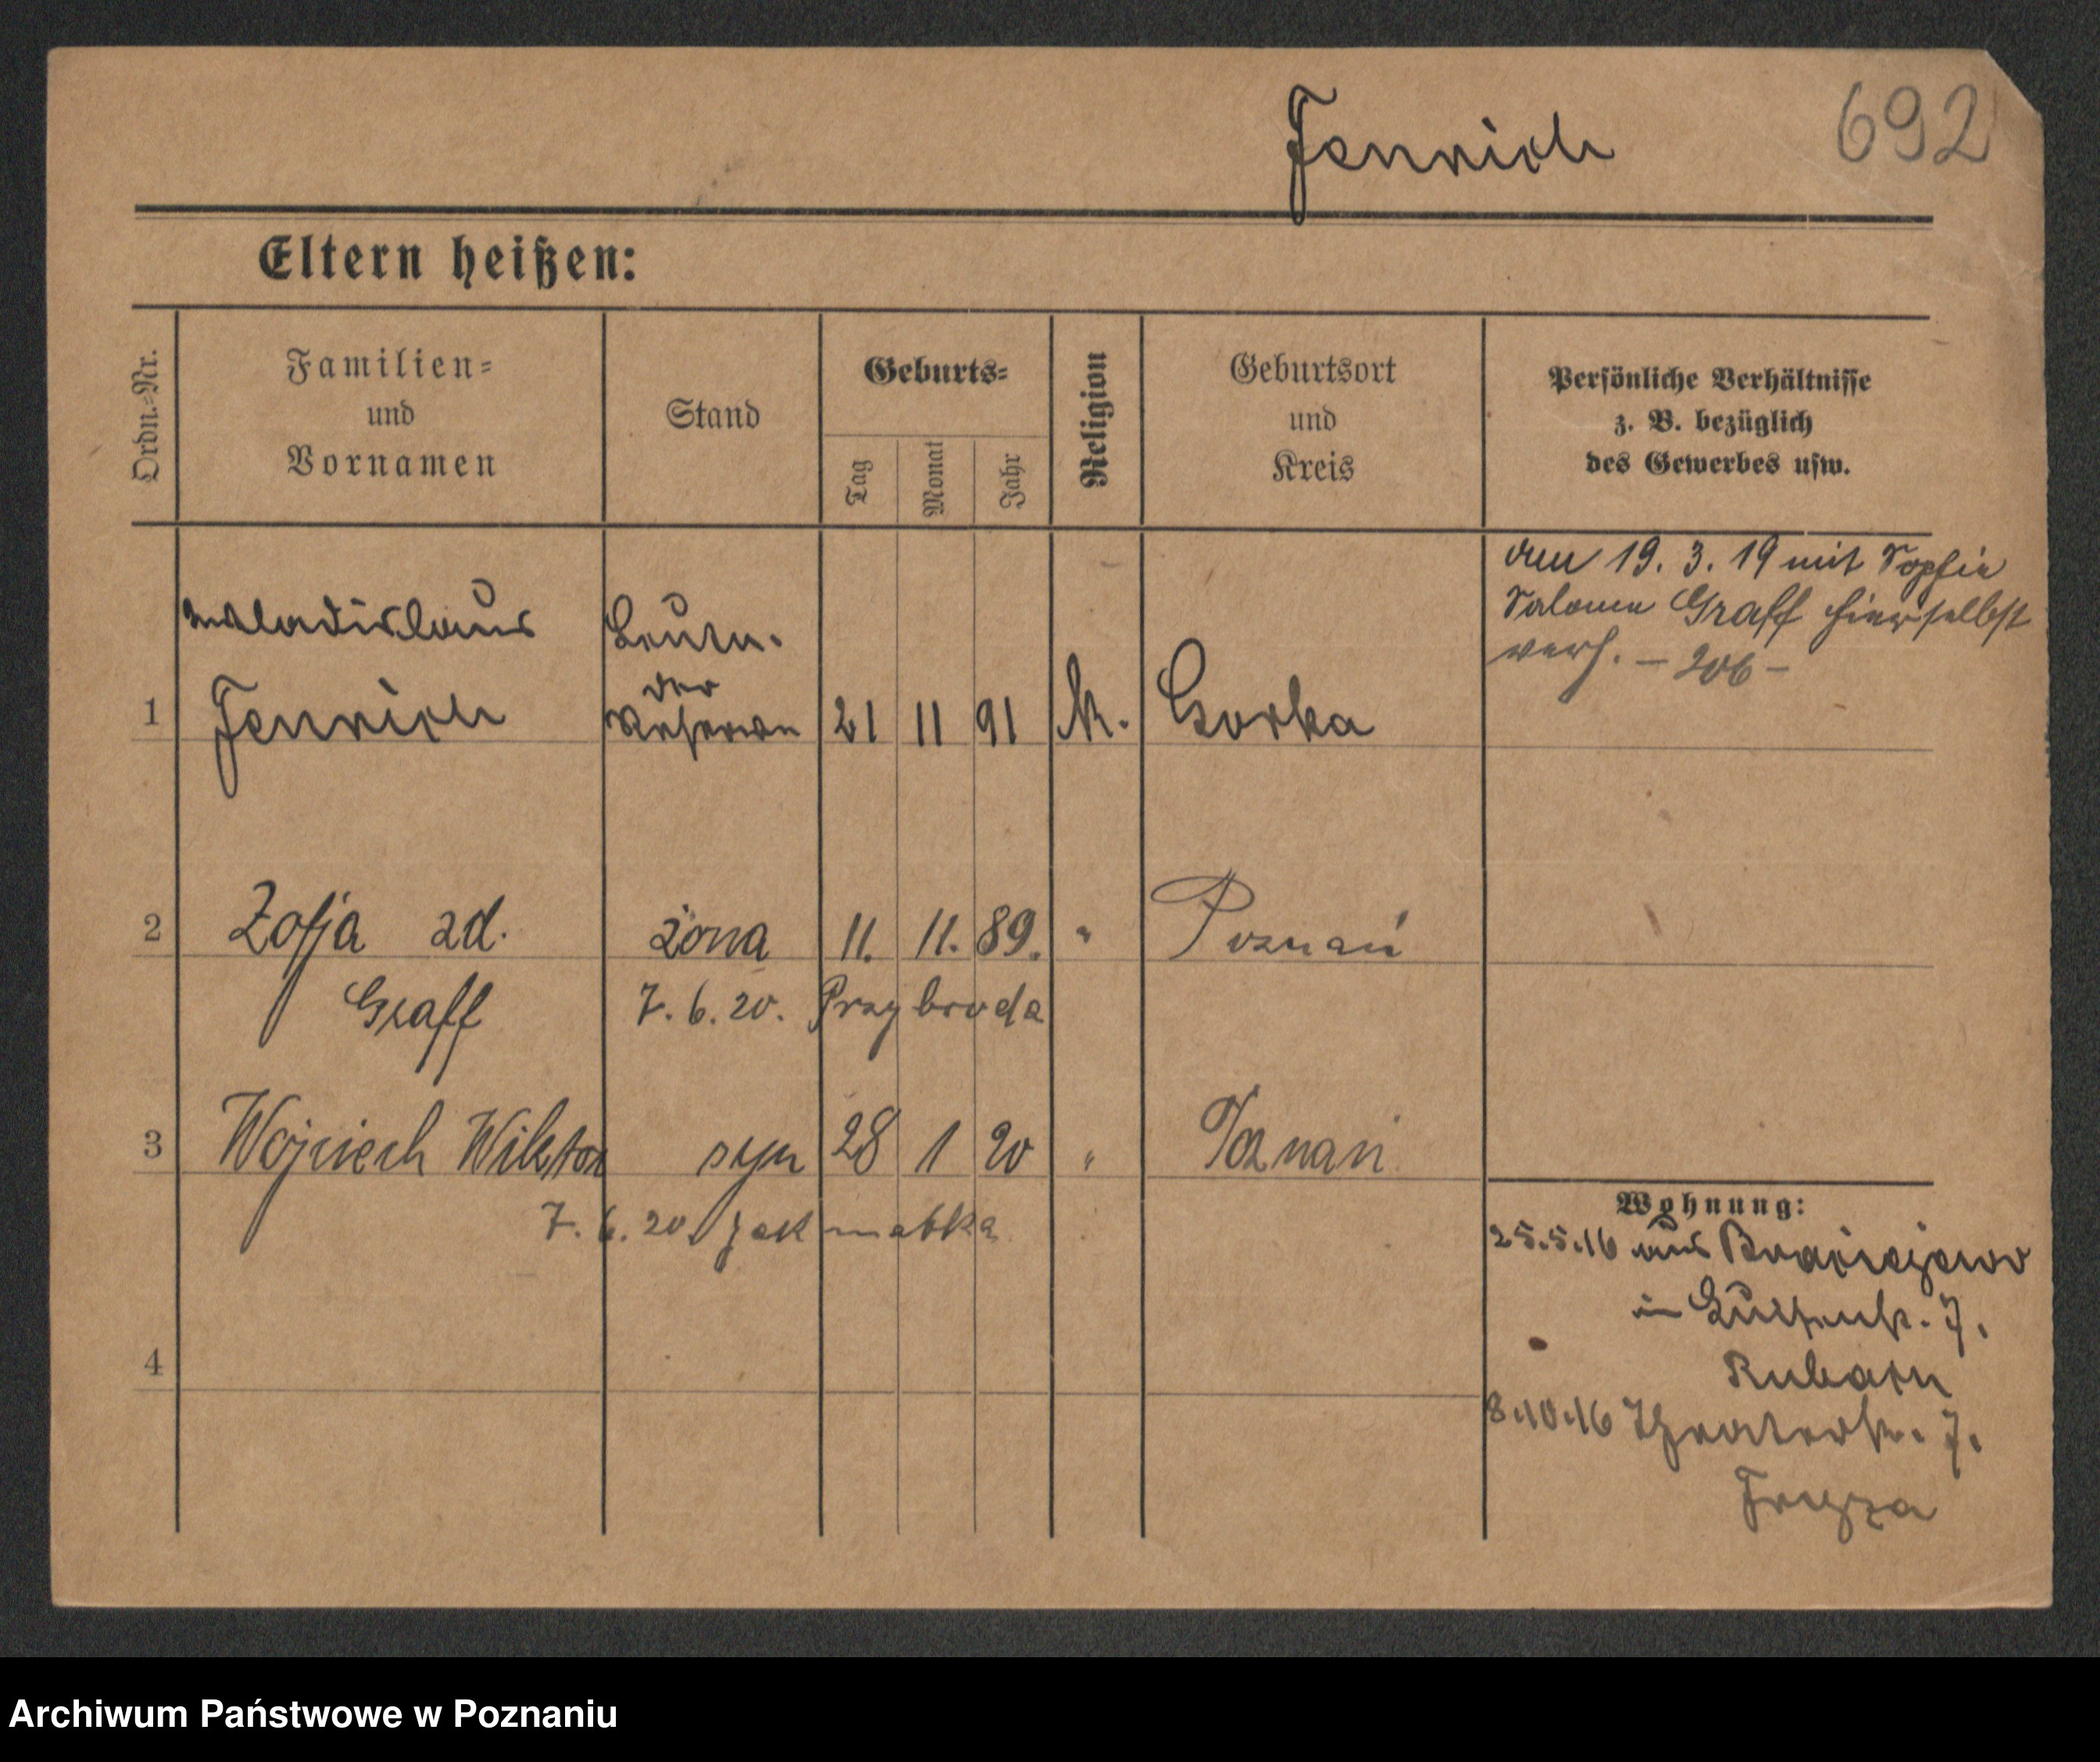 Fenrich 692
Eltern heißen:
Ordn.-Nr.
Familien-
und
Vornamen
Stand
Geburts-
Tag
Monat
Jahr
Religion
Geburtsort
und
Kreis
Persönliche Verhältnisse
z. B. bezüglich
des Gewerbes usw.
den 19. 3. 19 mit Sophie
Salomea Graff hierselbst
verh. – 206 –
1 Wladislaus
Fenrich
Leutn.
der
Reserve
21 11 91 K. Gorka
2 Zofja zd.
Graff
żona 11. 11. 89. " Poznań
7. 6. 20. Przybroda
3 Wojciech Wiktor syn 28 1 20 " Poznań
7. 6. 20 jak matka
4
Wohnung:
25.5.16 aus
in 7.
8.10.16 Theaterstr. 7.
Fryza
Archiwum Państwowe w Poznaniu